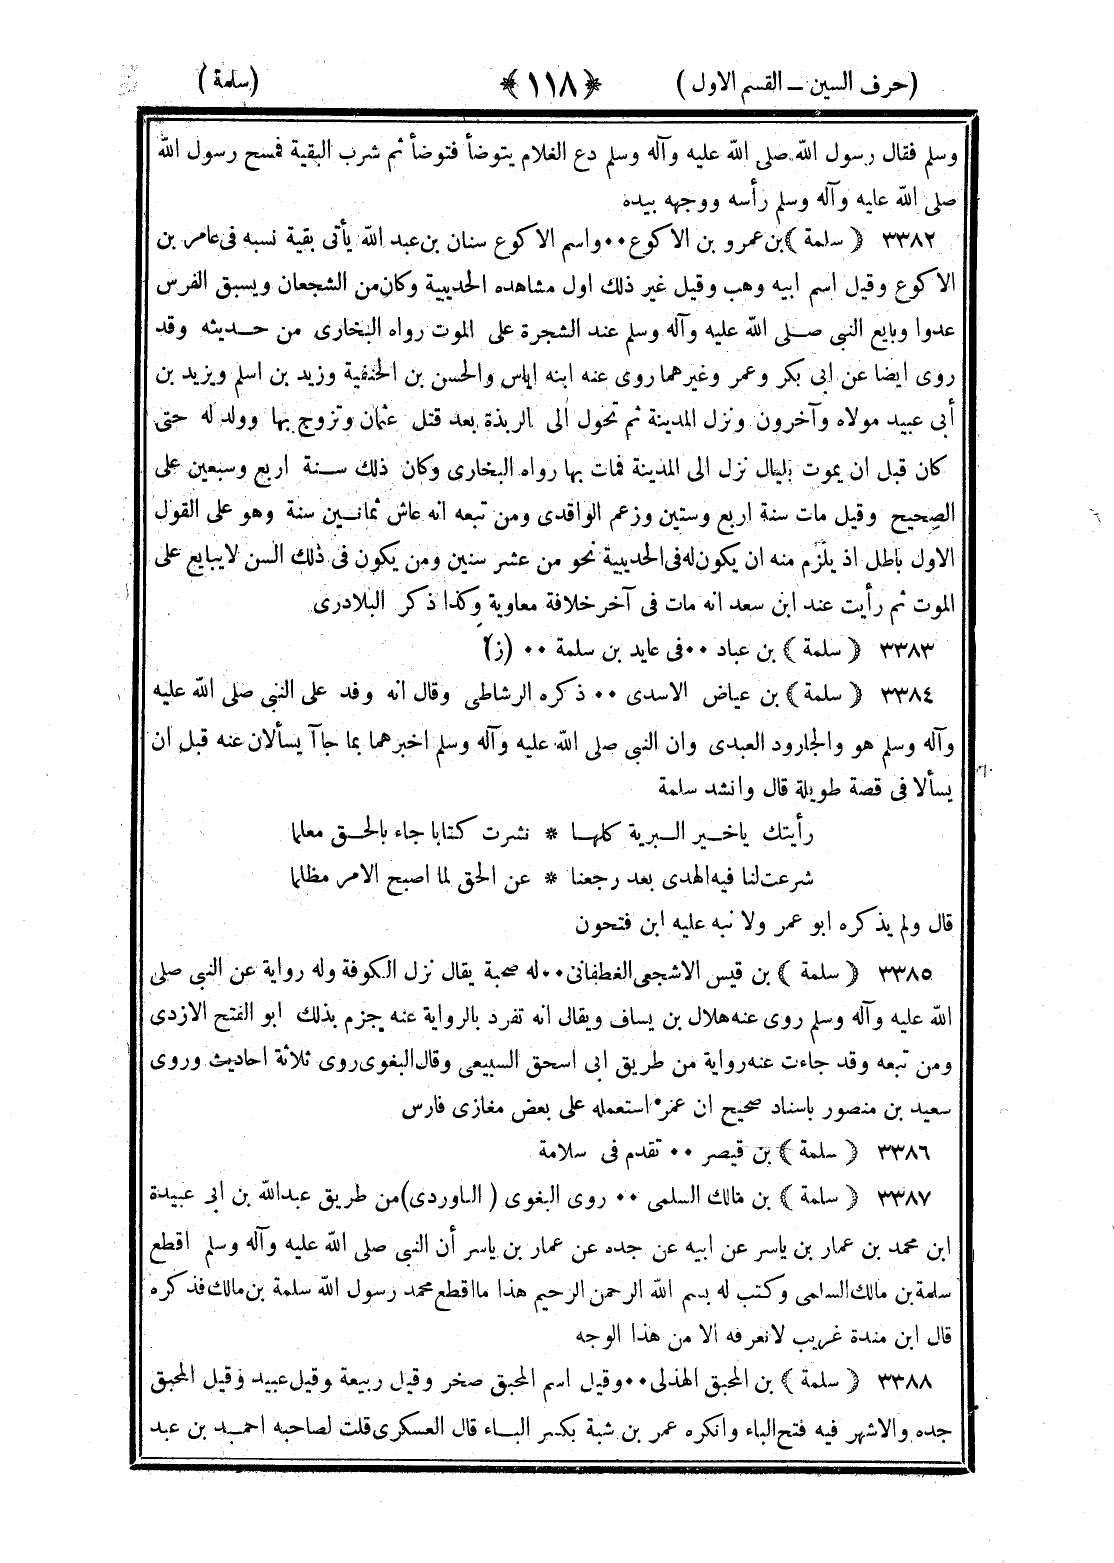 (حرف السين ــ القسم الاول) ﴿١١٨﴾ (سلمة)
وسلم فقال رسول الله صلى الله عليه وآله وسلم دع الغلام يتوضأ فتوضأ ثم شرب البقية فمسح رسول الله
صلى الله عليه وآله وسلم رأسه ووجهه بيده
٣٣٨٢ ﴿ سلمة ﴾ بن عمرو بن الاكوع ٠٠ واسم الاكوع سنان بن عبد الله يأتى بقية نسبه فى عامر بن
الاكوع وقيل اسم ابيه وهب وقيل غير ذلك اول مشاهده الحديبية وكان من الشجعان ويسبق الفرس
عدوا وبايع النبى صلى الله عليه وآله وسلم عند الشجرة على الموت رواه البخارى من حديثه وقد
روى ايضا عن ابى بكر وعمر وغيرهما روى عنه ابنه اياس والحسن بن الحنفية وزيد بن اسلم ويزيد بن
أبى عبيد مولاه وآخرون ونزل المدينة ثم تحول الى الربذة بعد قتل عثمان وتزوج بها وولد له حتى
كان قبل ان يموت بليال نزل الى المدينة فمات بها رواه البخارى وكان ذلك سنة اربع وسبعين على
الصحيح وقيل مات سنة اربع وستين وزعم الواقدى ومن تبعه انه عاش ثمانين سنة وهو على القول
الاول باطل اذ يلزم منه ان يكون له فى الحديبية نحو من عشر سنين ومن يكون فى ذلك السن لايبايع على
الموت ثم رأيت عند ابن سعد انه مات فى آخر خلافة معاوية وكذا ذكر البلادرى
٣٣٨٣ ﴿ سلمة ﴾ بن عباد ٠٠ فى عايد بن سلمة ٠٠ (ز)
٣٣٨٤ ﴿ سلمة ﴾ بن عياض الاسدى ٠٠ ذكره الرشاطى وقال انه وفد على النبى صلى الله عليه
وآله وسلم هو والجارود العبدى وان النبى صلى الله عليه وآله وسلم اخبرهما بما جاآ يسألان عنه قبل ان
يسألا فى قصة طويلة قال وانشد سلمة
رأيتك ياخير البرية كلها * نشرت كتابا جاء بالحق معلما
شرعت لنا فيه الهدى بعد رجعنا * عن الحق لما اصبح الامر مظلما
قال ولم يذكره ابو عمر ولا نبه عليه ابن فتحون
٣٣٨٥ ﴿ سلمة ﴾ بن قيس الاشجعى الغطفانى ٠٠ له صحبة يقال نزل الكوفة وله رواية عن النبى صلى
الله عليه وآله وسلم روى عنه هلال بن يساف ويقال انه تفرد بالرواية عنه جزم بذلك ابو الفتح الازدى
ومن تبعه وقد جاءت عنه رواية من طريق ابى اسحق السبيعى وقال البغوى روى ثلاثة احاديث وروى
سعيد بن منصور باسناد صحيح ان عمر استعمله على بعض مغازى فارس
٣٣٨٦ ﴿ سلمة ﴾ بن قيصر ٠٠ تقدم فى سلامة
٣٣٨٧ ﴿ سلمة ﴾ بن مالك السلمى ٠٠ روى البغوى (الباوردى) من طريق عبدالله بن ابى عبيدة
ابن محمد بن عمار بن ياسر عن ابيه عن جده عن عمار بن ياسر أن النبى صلى الله عليه وآله وسلم اقطع
سلمة بن مالك السلمى وكتب له بسم الله الرحمن الرحيم هذا ما اقطع محمد رسول الله سلمة بن مالك فذكره
قال ابن مندة غريب لانعرفه الا من هذا الوجه
٣٣٨٨ ﴿ سلمة ﴾ بن المحبق الهذلى ٠٠ وقيل اسم المحبق صخر وقيل ربيعة وقيل عبيد وقيل المحبق
جده والاشهر فيه فتح الباء وانكره عمر بن شبة بكسر الباء قال العسكرى قلت لصاحبه احمد بن عبد